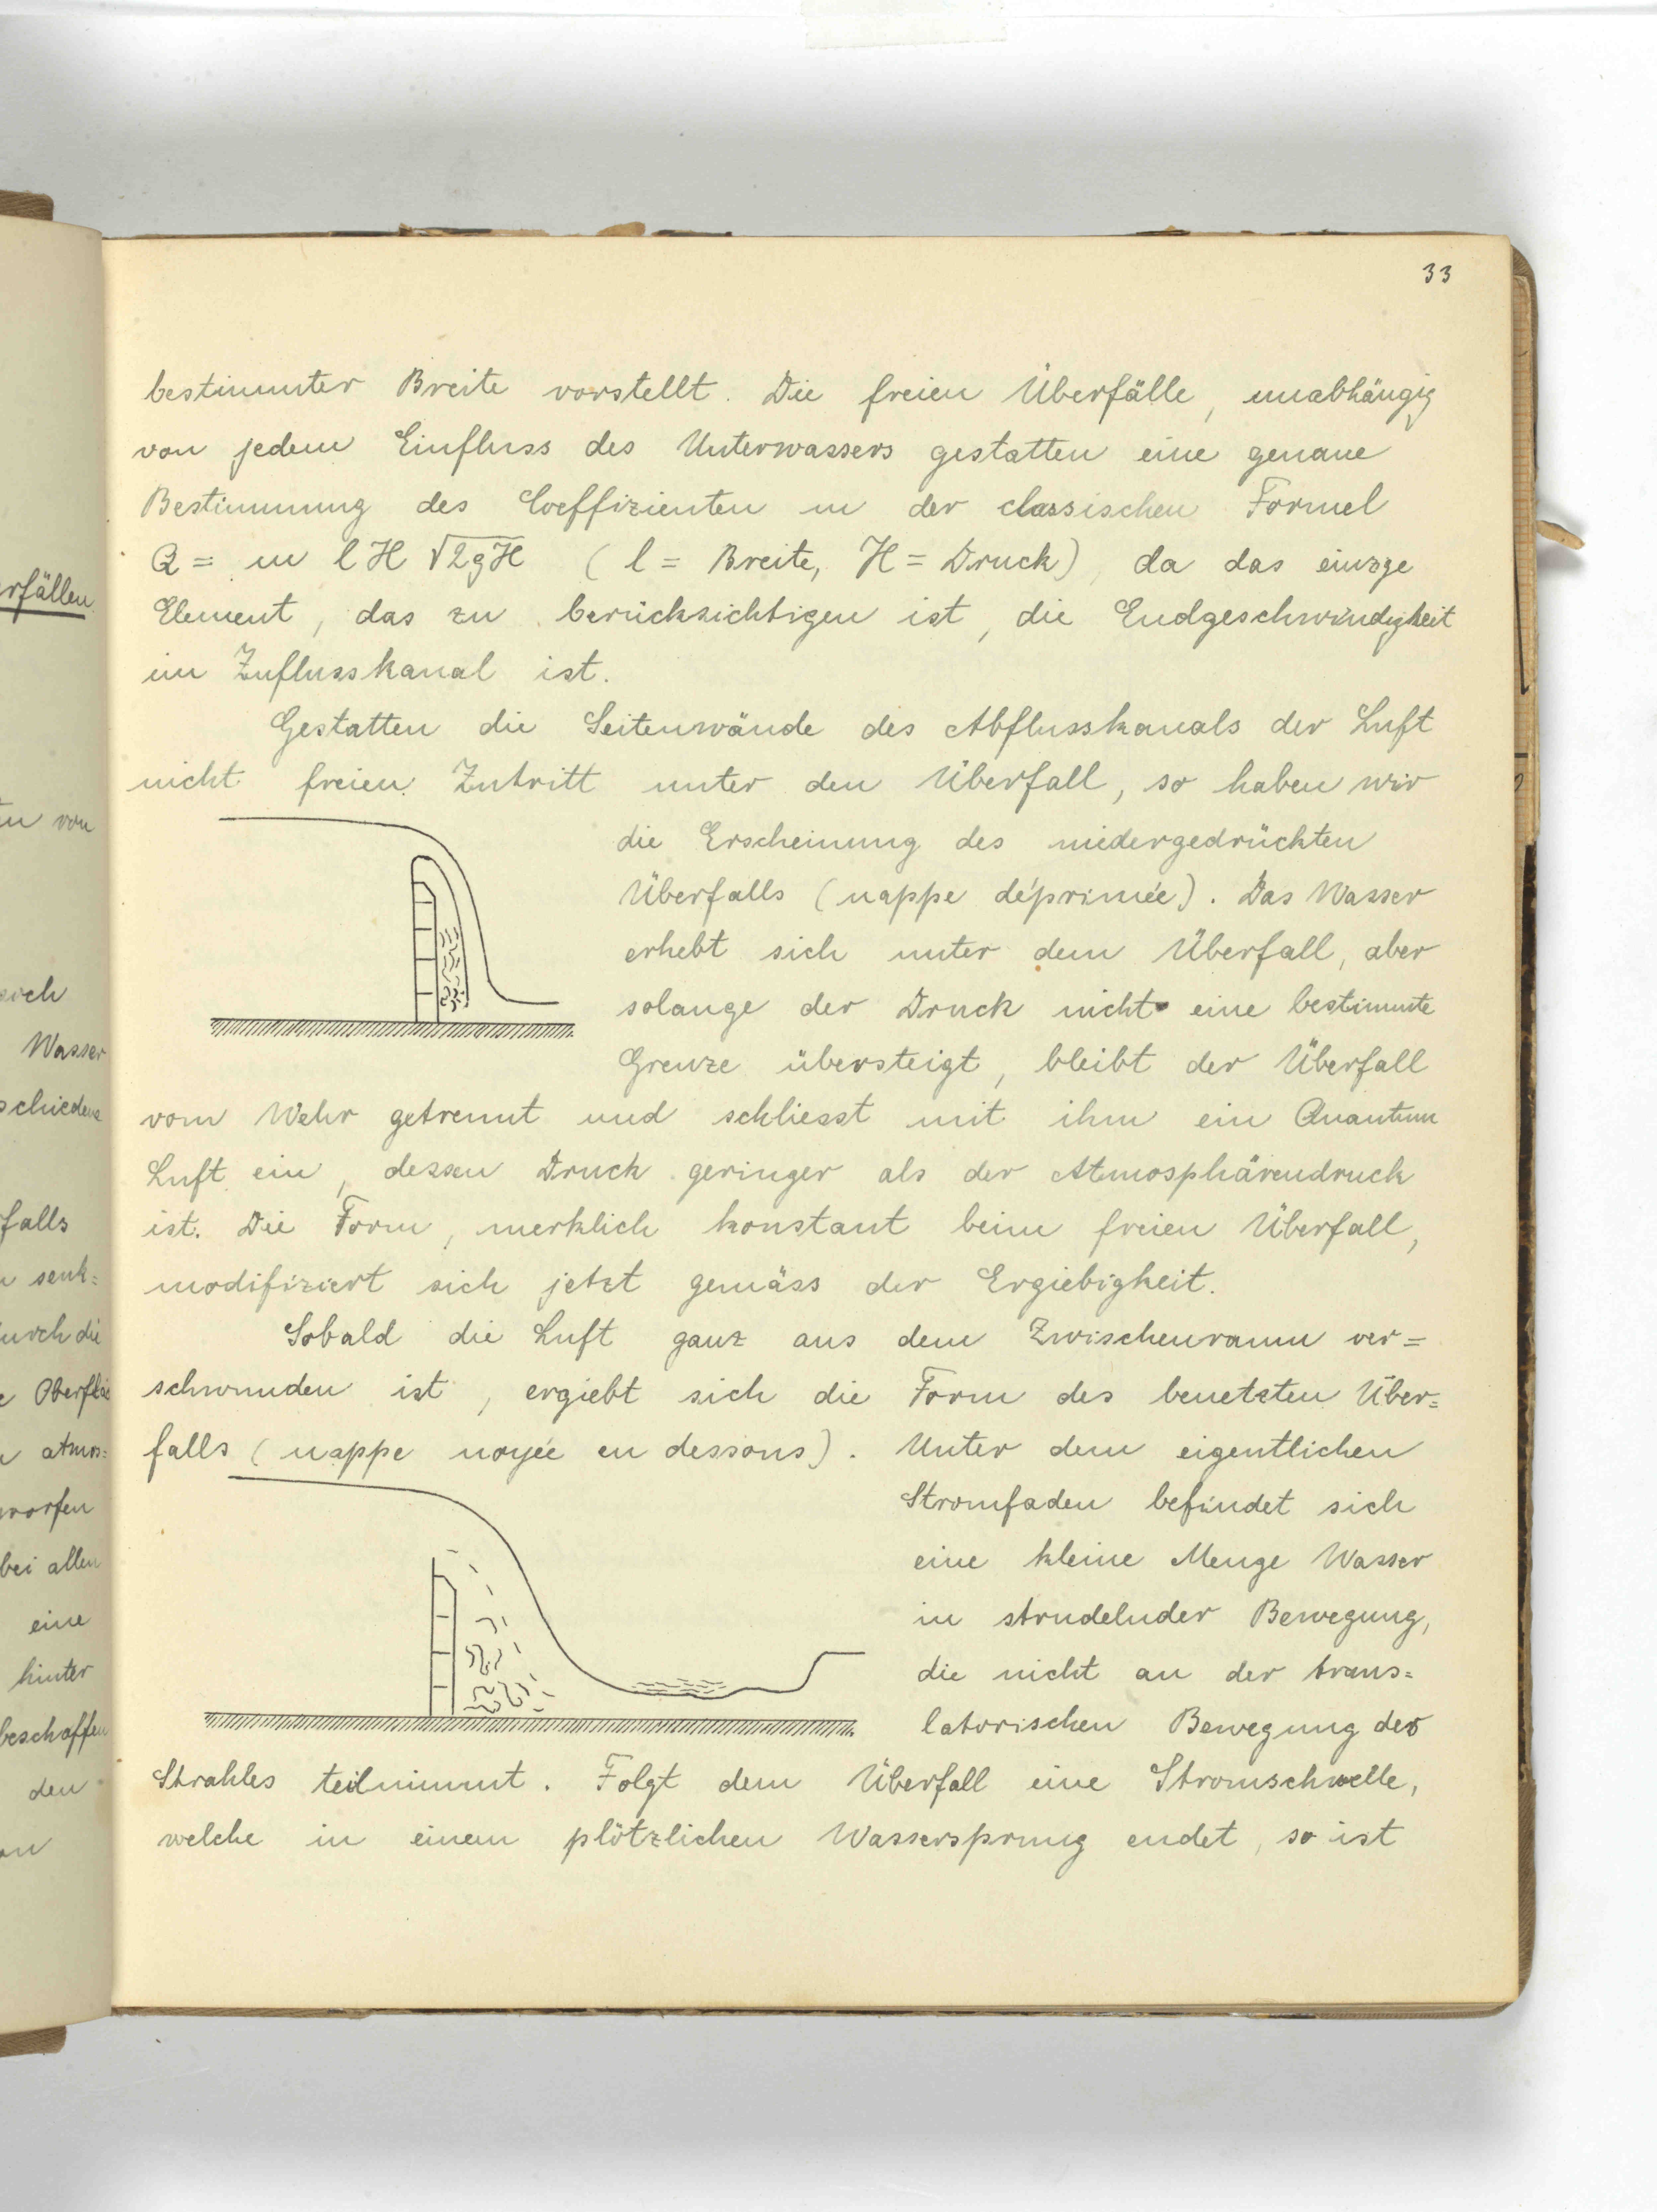 33
bestimmter Breite vorstellt. Die freien Überfälle, unabhängig
von jedem Einfluss des Unterwassers gestatten eine genaue
Bestimmung des Coeffizienten m der classischen Formel
Q = m l H √2gH ( l = Breite, H = Druck), da das einzge
Element, das zu berücksichtigen ist, die Endgeschwindigkeit
im Zuflusskanal ist.
Gestatten die Seitenwände des Abflusskanals der Luft
nicht freien Zutritt unter den Überfall, so haben wir
die Erscheinung des niedergedrückten
Überfalls (nappe déprimée). Das Wasser
erhebt sich unter dem Überfall, aber
solange der Druck nicht eine bestimmte
Grenze übersteigt, bleibt der Überfall
vom Wehr getrennt und schliesst mit ihm ein Quantum
Luft ein, dessen Druck geringer als der Atmosphärendruck
ist. Die Form, merklich konstant beim freien Überfall,
modifiziert sich jetzt gemäss der Ergiebigkeit.
Sobald die Luft ganz aus dem Zwischenraum ver=
schwunden ist, ergiebt sich die Form des benetzten Über=
falls (nappe noyée en dessous). Unter dem eigentlichen
Stromfaden befindet sich
eine kleine Menge Wasser
in strudelnder Bewegung,
die nicht an der trans=
latorischen Bewegung des
Strahles teilnimmt. Folgt dem Überfall eine Stromschwelle,
welche in einem plötzlichen Wassersprung endet, so ist
rfällen
von
sich
Wasser
schiedene
falls
senk=
durch die
Oberflä
atmos=
worfen
bei allen
eine
hinter
beschaffen
den